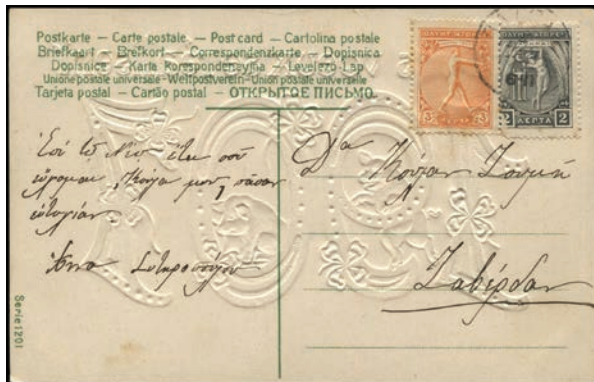 Postkarte – Carte postale – Post card – Cartolina postale
Briefkaart – Brefkort – Correspondenzkarte – Dopisnica
Dopisnice – Karta Korespondencyjna – Levelező-Lap
Unione postale universale – Weltpostverein – Union postale universelle
Tarjeta postal – Cartão postal – ОТКРЫТОЕ ПИСЬМО.
3 3
2 ΛΕΠΤΑ 2
Ἐπὶ τῷ Νέῳ ἔτει σοῦ
εὔχομαι μου, πᾶσαν
εὐτυχίαν.
Σωτηροπούλου
Δα
Ζαβέρδαν
Serie 1201